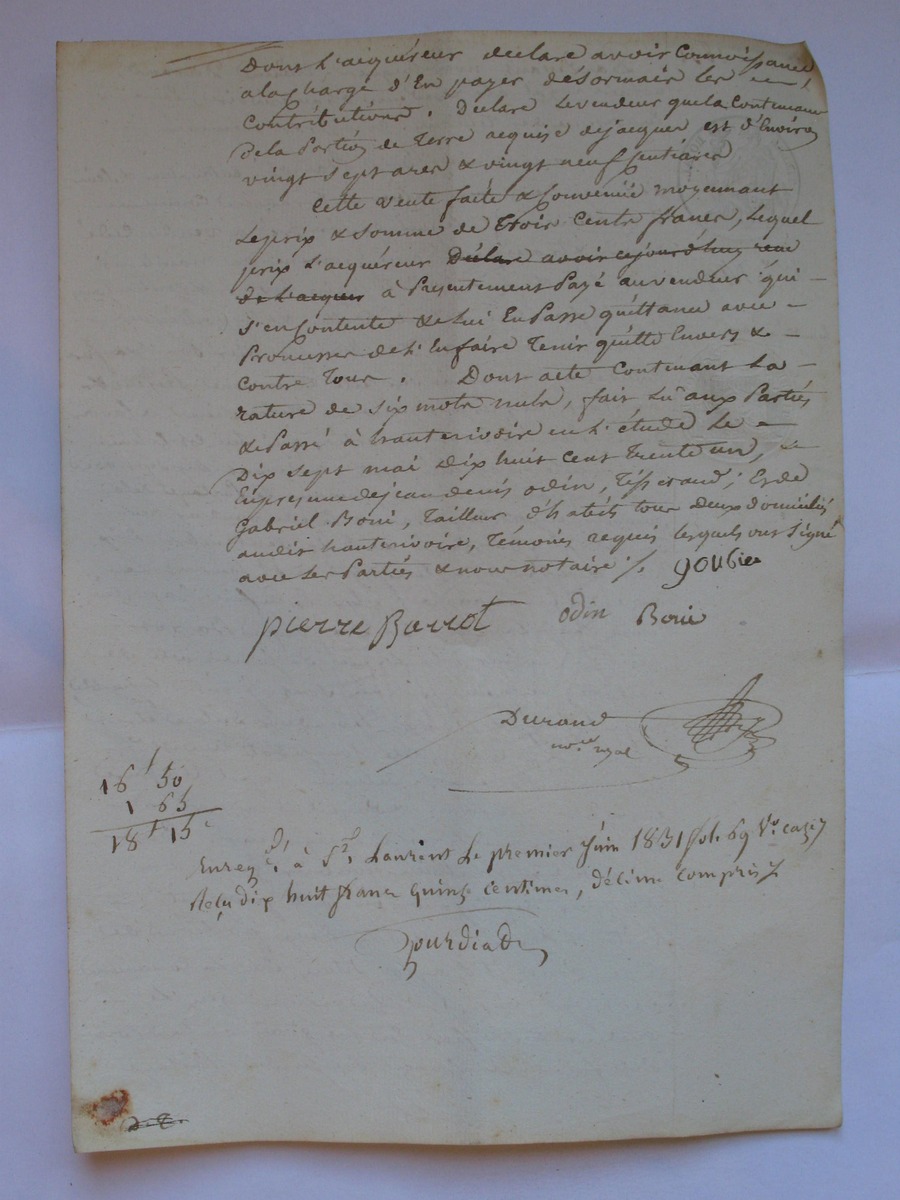 Dont L'aiquéreur declare avoir Connoissance,
a la Charge d'En payer desormais les
Contributions. Declare Le vendeur que la Contenance
De la Portion de Terre acquise dejacquer est d'Environ
vingt sept ares & vingt neuf Centiares
Cette vente faite & Convenüe moyennant
Le prix & Somme de Trois Cents francs, Lequel
prix L'aquéreur Déclare avoir cejourd'huy reçu
de L'acquer à Presentement Payé au vendeur qui
s'en Contente & Lui En Passe quittance avec
Promesse de L'En faire Tenir quitte Envers &
Contre Tous. Dont acte Contenant La
rature de six mots nuls, fait Lû aux Parties
& Passé à hauterivoire en L'étude Le
Dix sept mai Dix huit Cent Trente un,
En presence de jean denis odin, Tisserand, Et de
Gabriel Boni, Tailleur d'habits tous deux domiciliés
audit hauterivoire, Témoins requis Lesquels ont Signé
avec Les Parties & nous notaire ./.
pierre Barrot odin Boni
Durand
no.re royal
16f 50
1 65
18f 15c
Enreg. à St. Laurent Le premier Juin 1831 fol. 69 Vo. case 7
Reçu dix huit francs quinze centimes, décime compris